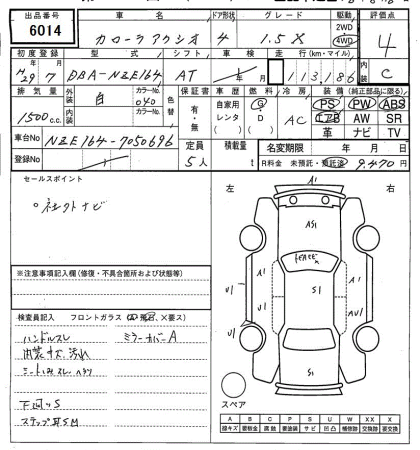 出品番号 車名 ドア形状 グレード 駆動 評価点
6014 カローラアクシオ 4 1.5X 2WD 4WD 4
初度登録 型式 シフト 車検 走行(km・マイル) 内装
H29年7月 DBA-NZE164 AT 年 月 113,186 C
排気量 外装 カラーNo. 色替 保証書 車歴 燃料 冷房 装備(純正部品に限る)
1500c.c. 白 040 有・無 自家用 レンタ G・D AC PS PW ABS
内装 カラーNo. エアB AW SR
革 ナビ TV
車台No NZE164-7050696 定員 積載量 名変期限 年 月 日
登録No 5人 t R料金 未預託・預託済 9,470円
セールスポイント
。ネクストナビ
※注意事項記入欄(修復・不具合箇所および状態等)
検査員記入 フロントガラス(A、飛石、X要ス)
ハンドルスレ ミラーカバーA
内装キズ、汚れ
下廻りS
左 右
A1
AS1
A1 A1
U1 S1
A1 AU1
U1 U1
S1
スペア
A B C P S U W X XX
線キズ 要鈑金 腐蝕 要塗装 サビ 凹凸 補修跡 交換跡 要交換